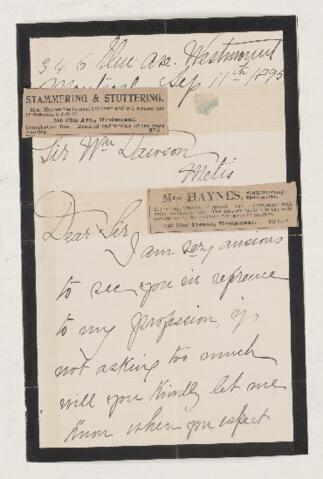 346 Elm Ave. Westmount
Montreal Sep 11th 1895
STAMMERING & STUTTERING.
346 Elm Ave, Westmount.
Sir Wm Dawson
Metis
Mrs HAYNES,
346 Elm Avenue, Westmount.
Dear Sir
I am very anxious
to see you in refrence
to my profession, if
not asking too much
will you kindly let me
know when you expect